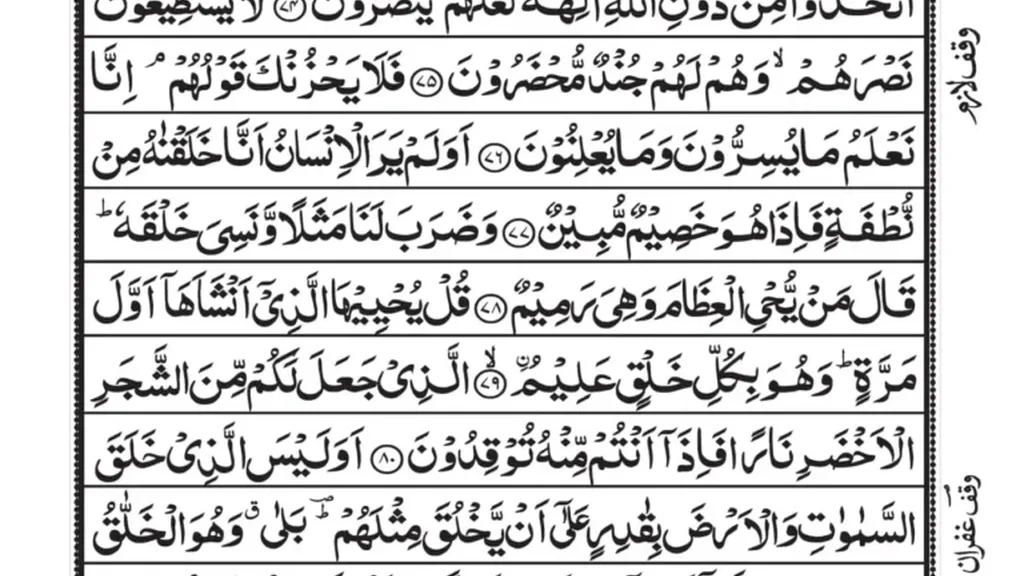 اتَّخَذُوْا مِنْ دُوْنِ اللّٰهِ اٰلِهَةً لَّعَلَّهُمْ يُنْصَرُوْنَ ﴿۷۴﴾ لَا يَسْتَطِيْعُوْنَ
نَصْرَهُمْ ۙ وَهُمْ لَهُمْ جُنْدٌ مُّحْضَرُوْنَ ﴿۷۵﴾ فَلَا يَحْزُنْكَ قَوْلُهُمْ ۘ اِنَّا
وقف لازم
نَعْلَمُ مَا يُسِرُّوْنَ وَمَا يُعْلِنُوْنَ ﴿۷۶﴾ اَوَلَمْ يَرَ الْاِنْسَانُ اَنَّا خَلَقْنٰهُ مِنْ
نُّطْفَةٍ فَاِذَا هُوَ خَصِيْمٌ مُّبِيْنٌ ﴿۷۷﴾ وَضَرَبَ لَنَا مَثَلًا وَّنَسِىَ خَلْقَهٗ ؕ
قَالَ مَنْ يُّحْىِ الْعِظَامَ وَهِىَ رَمِيْمٌ ﴿۷۸﴾ قُلْ يُحْيِيْهَا الَّذِىْۤ اَنْشَاَهَاۤ اَوَّلَ
مَرَّةٍ ؕ وَهُوَ بِكُلِّ خَلْقٍ عَلِيْمُ ۨ ﴿۷۹﴾ ۙ الَّذِىْ جَعَلَ لَكُمْ مِّنَ الشَّجَرِ
الْاَخْضَرِ نَارًا فَاِذَاۤ اَنْتُمْ مِّنْهُ تُوْقِدُوْنَ ﴿۸۰﴾ اَوَلَيْسَ الَّذِىْ خَلَقَ
السَّمٰوٰتِ وَالْاَرْضَ بِقٰدِرٍ عَلٰٓى اَنْ يَّخْلُقَ مِثْلَهُمْ ؕ بَلٰى ق وَهُوَ الْخَلّٰقُ
وقف غفران